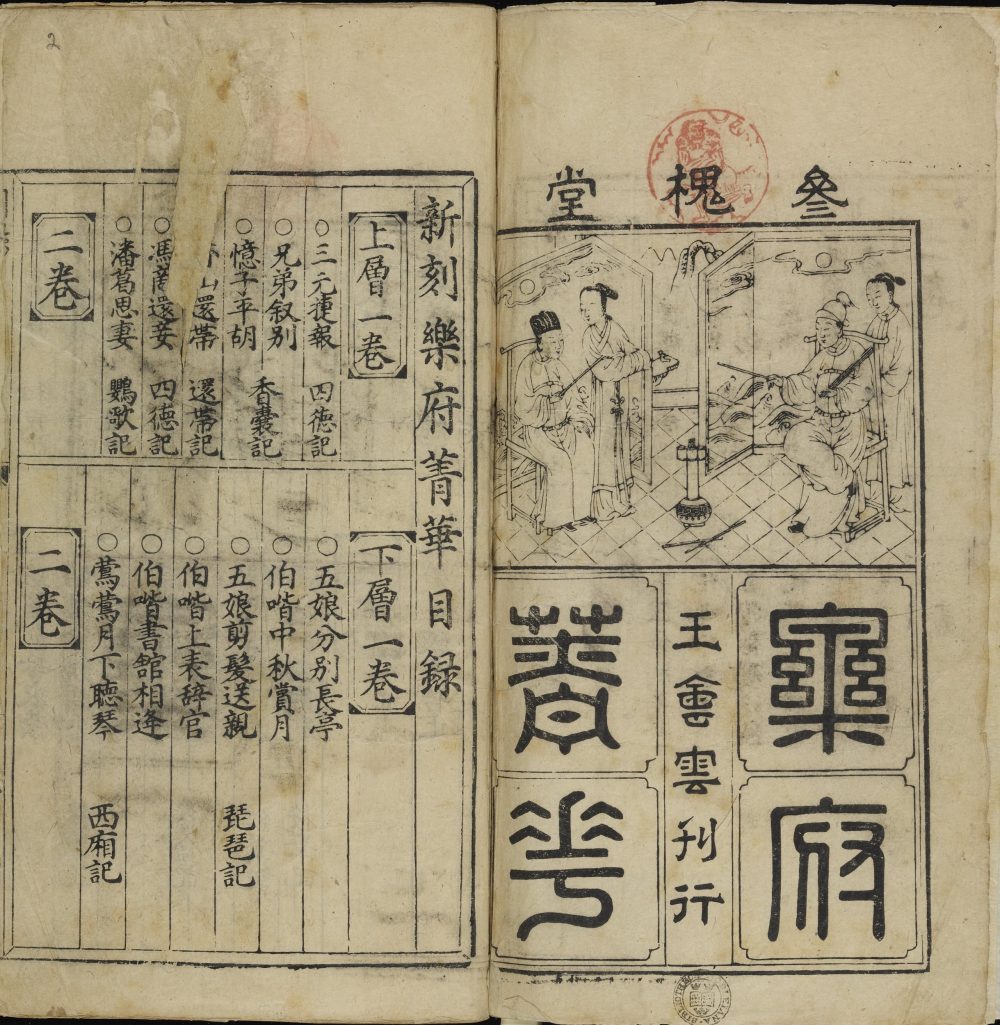 參槐堂
樂府
王會雲刊行
菁花
新刻樂府菁華目錄
上層一卷
○三元捷報 四德記
○兄弟叙别
○憶子平胡 香囊記
山還帶 還帶記
○馮商還妾 四德記
○潘葛思妻 鸚歌記
二卷
下層一卷
○五娘分别長亭
○伯喈中秋賞月
○五娘剪髮送親 琵琶記
○伯喈上表辞官
○伯喈書館相逢
○鶯鶯月下聽琴 西廂記
二卷
2